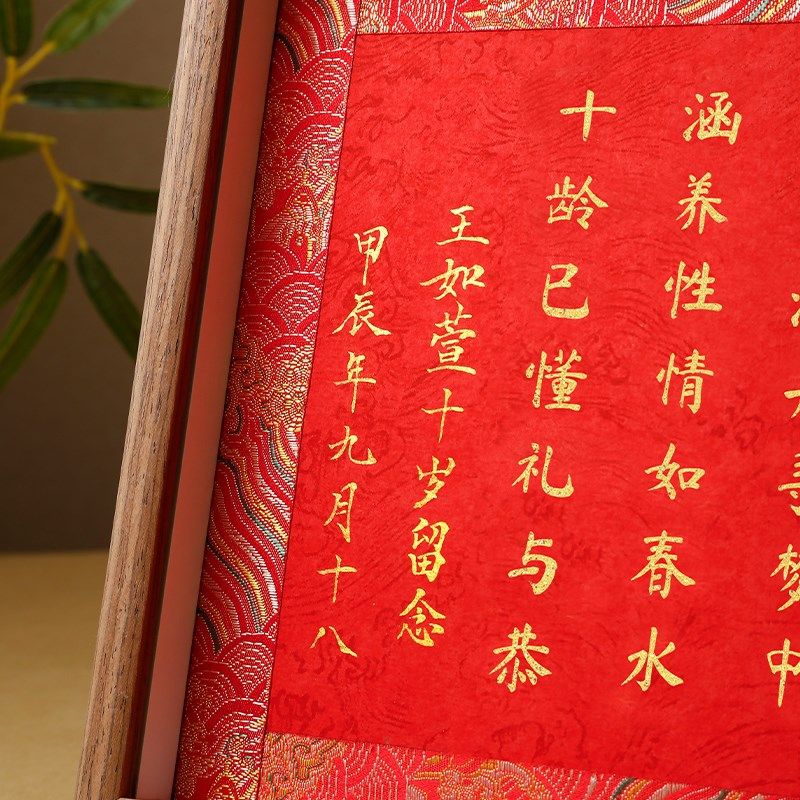 涵养性情如春水
十龄已懂礼与恭
王如萱十岁留念
甲辰年九月十八